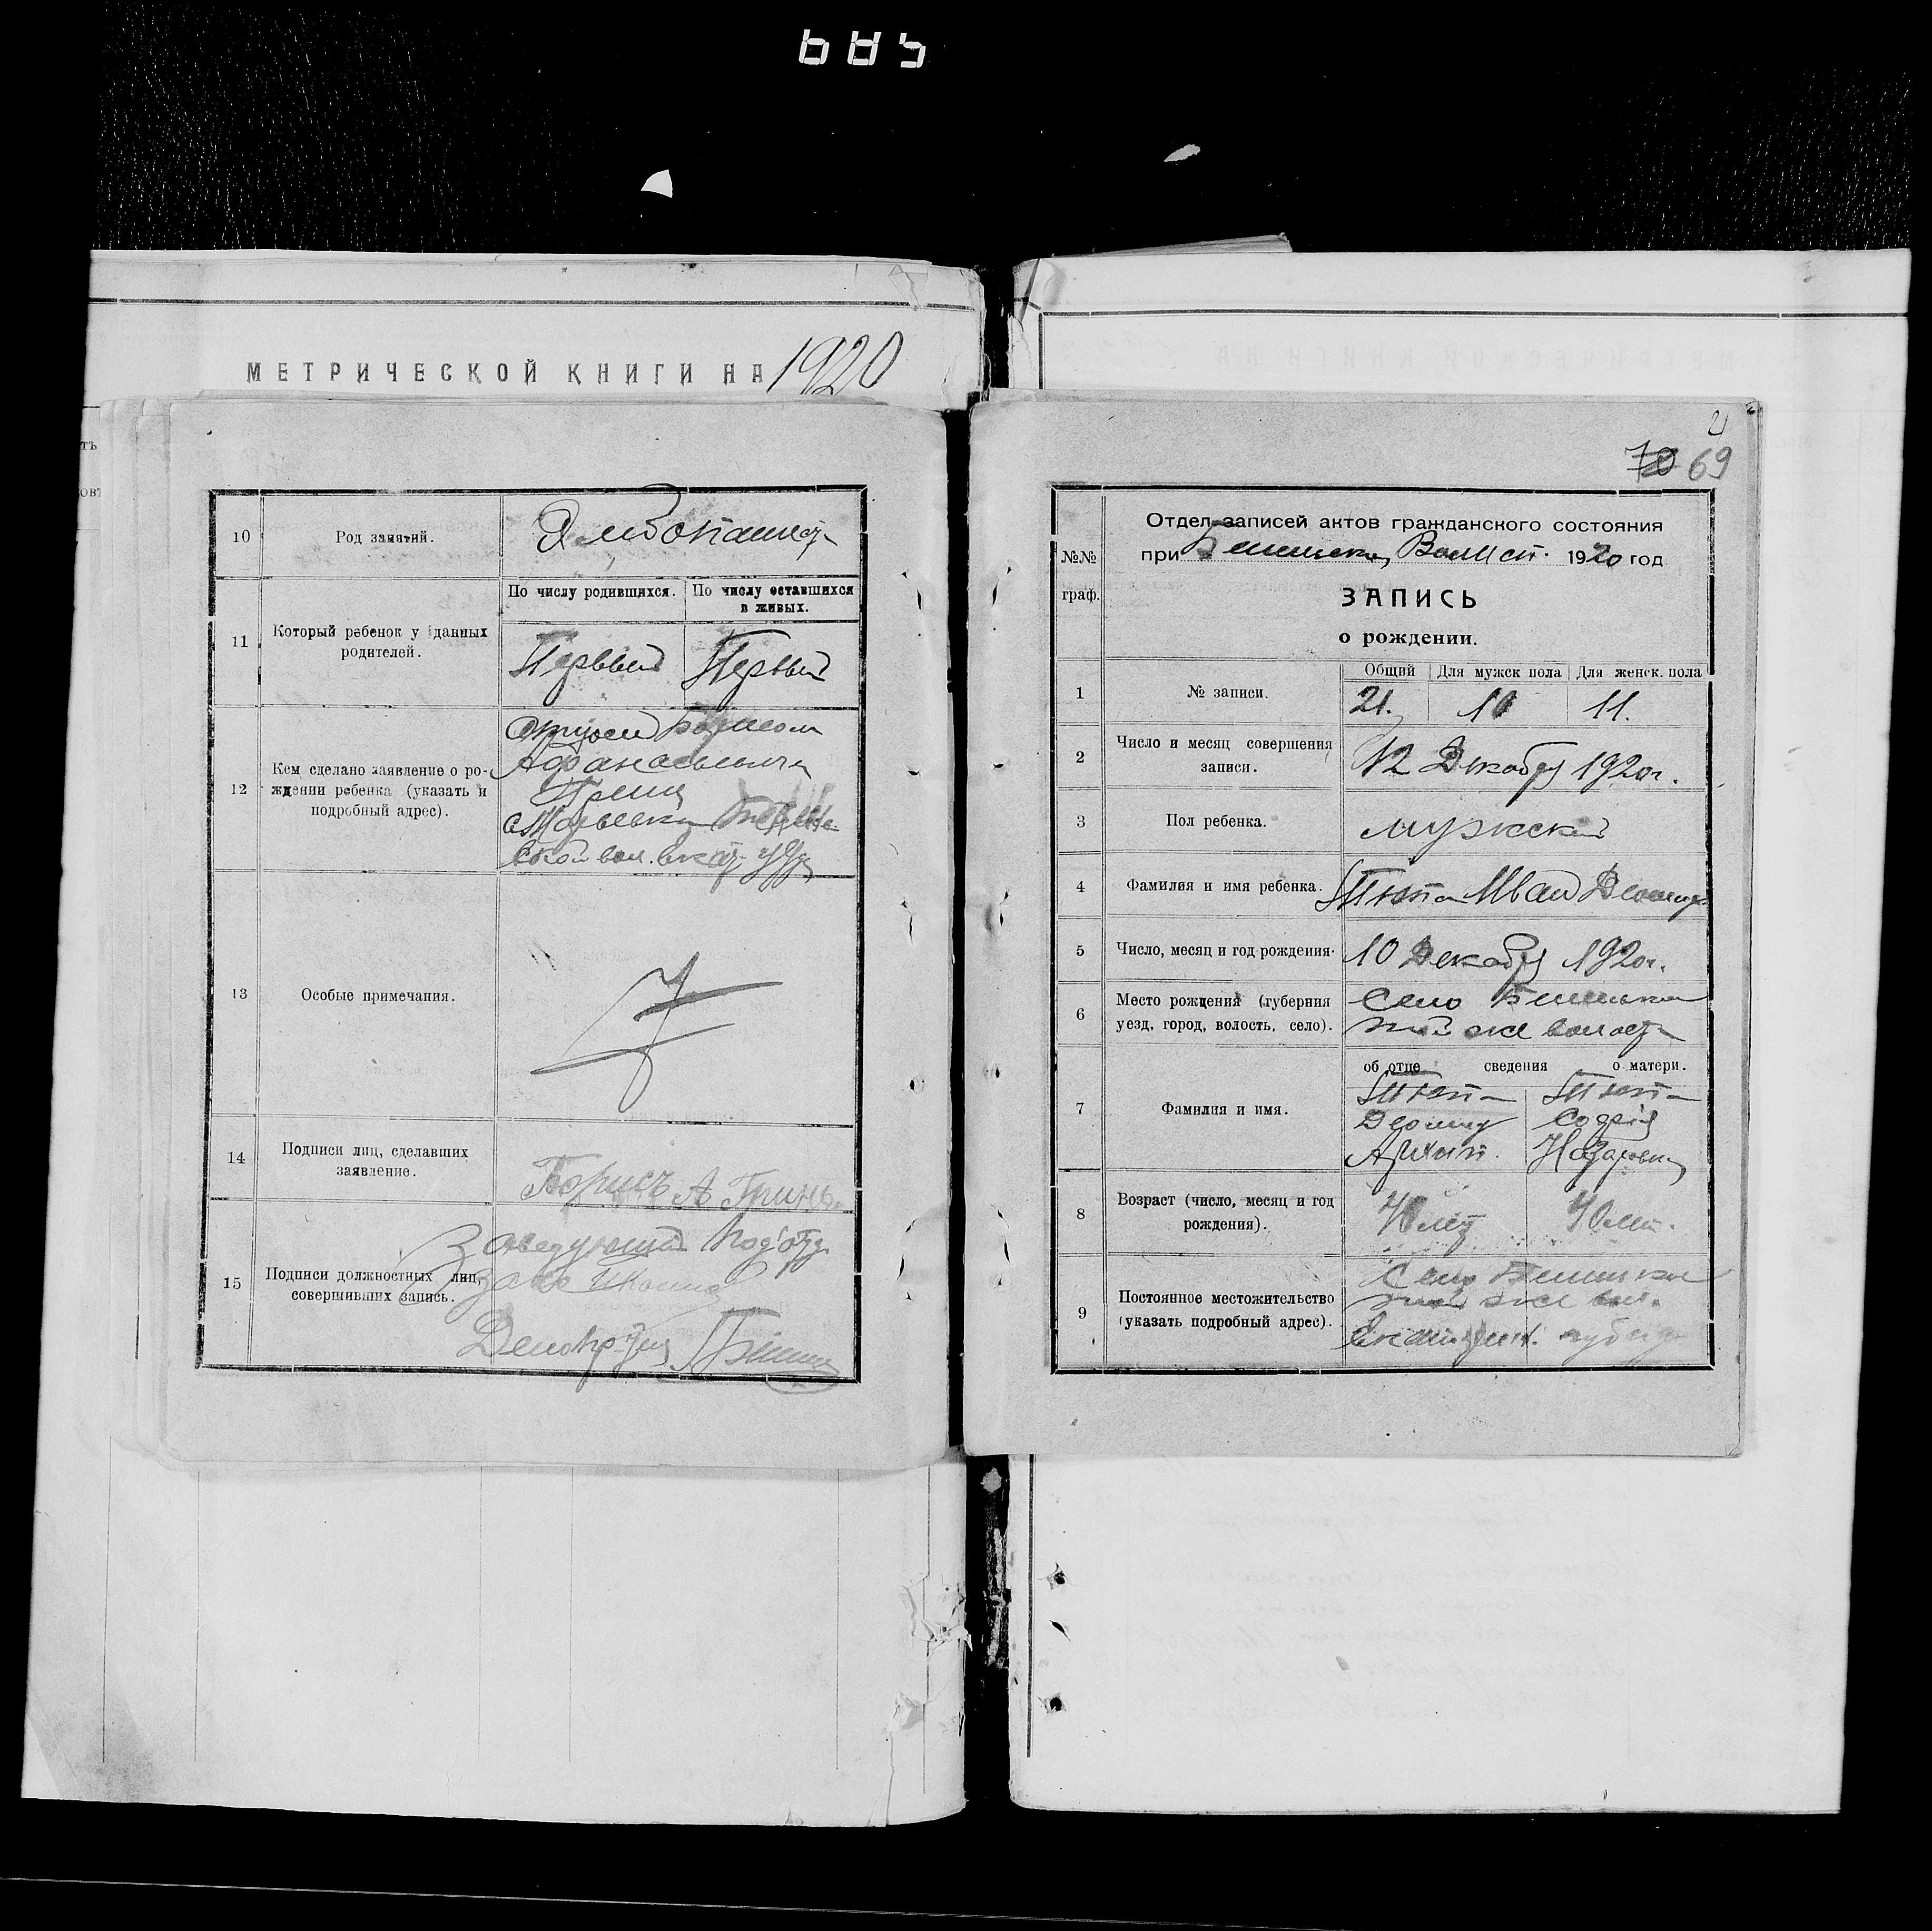 685
МЕТРИЧЕСКОЙ КНИГИ НА 1920
10
Род занятий.
11
Который ребенок у данных
родителей.
По числу родившихся.
По числу оставшихся
в живых.
Первый
Первый
12
Кем сделано заявление о ро-
ждении ребенка (указать и
подробный адрес).
Отцом Борисом
Афанасьевич
13
Особые примечания.
14
Подписи лиц, сделавших
заявление.
Борисъ А Гринь
15
Подписи должностных лиц,
совершивших запись.
Заведующий Под'отд
21
70 69
№№
граф.
Отдел записей актов гражданского состояния
при Волист. 1920 год
ЗАПИСЬ
о рождении.
Общий
Для мужск пола
Для женск. пола
1
№ записи.
21.
10
11.
2
Число и месяц совершения
записи.
12 Декабря 1920г.
3
Пол ребенка.
мужской
4
Фамилия и имя ребенка.
Тюта Иван
5
Число, месяц и год рождения.
10 Декабря 1920г.
6
Место рождения (губерния
уезд, город, волость, село).
Село
той же волости
об отце
сведения
о матери.
7
Фамилия и имя.
Тюта
Тюта
Софія
Архип.
Назаровна
8
Возраст (число, месяц и год
рождения).
40 лет
40 лет.
9
Постоянное местожительство
(указать подробный адрес).
Село
той же вол.